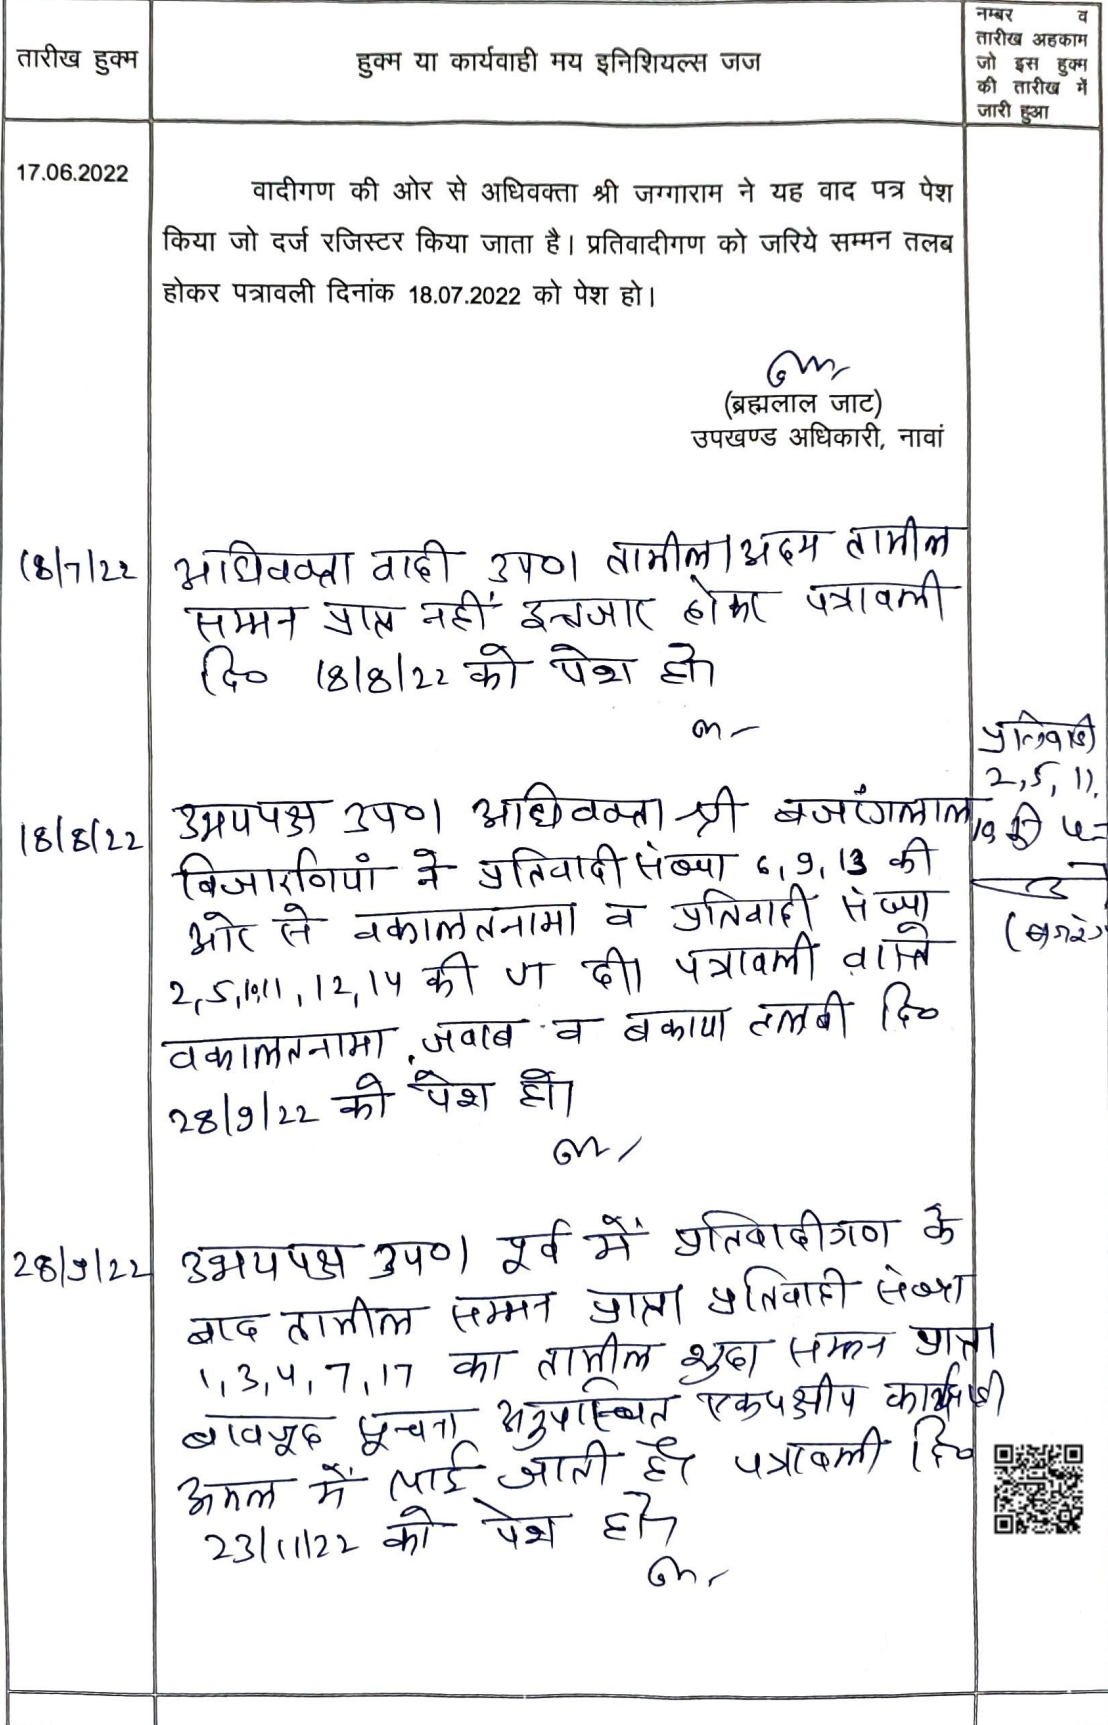 तारीख हुक्म
हुक्म या कार्यवाही मय इनिशियल्स जज
नम्बर व
तारीख अहकाम
जो इस हुक्म
की तारीख में
जारी हुआ
17.06.2022
वादीगण की ओर से अधिवक्ता श्री जग्गाराम ने यह वाद पत्र पेश
किया जो दर्ज रजिस्टर किया जाता है। प्रतिवादीगण को जरिये सम्मन तलब
होकर पत्रावली दिनांक 18.07.2022 को पेश हो।
(ब्रह्मलाल जाट)
उपखण्ड अधिकारी, नावां
18/7/22
अधिवक्ता वादी उप०। तामील/अदम तामील
सम्मन प्राप्त नहीं इन्तजार होकर पत्रावली
दि० 18/8/22 को पेश हो।
18/8/22
उभयपक्ष उप०। अधिवक्ता श्री बजरंगलाल
बिजारणियां ने प्रतिवादी संख्या 6, 9, 13 की
ओर से वकालतनामा व प्रतिवादी संख्या
2, 5, 10, 11, 12, 14 की दी। पत्रावली वास्ते
वकालतनामा, जवाब व बकाया तलबी दि०
28/9/22 को पेश हो।
प्रतिवादी
2, 5, 11,
28/9/22
उभयपक्ष उप०। पूर्व में प्रतिवादीगण के
बाद तामील सम्मन प्राप्त। प्रतिवादी संख्या
1, 3, 4, 7, 17 का तामील शुदा सम्मन प्राप्त।
बावजूद सूचना अनुपस्थित एकपक्षीय कार्यवाही
अमल में लाई जाती है। पत्रावली दि०
23/11/22 को पेश हो।